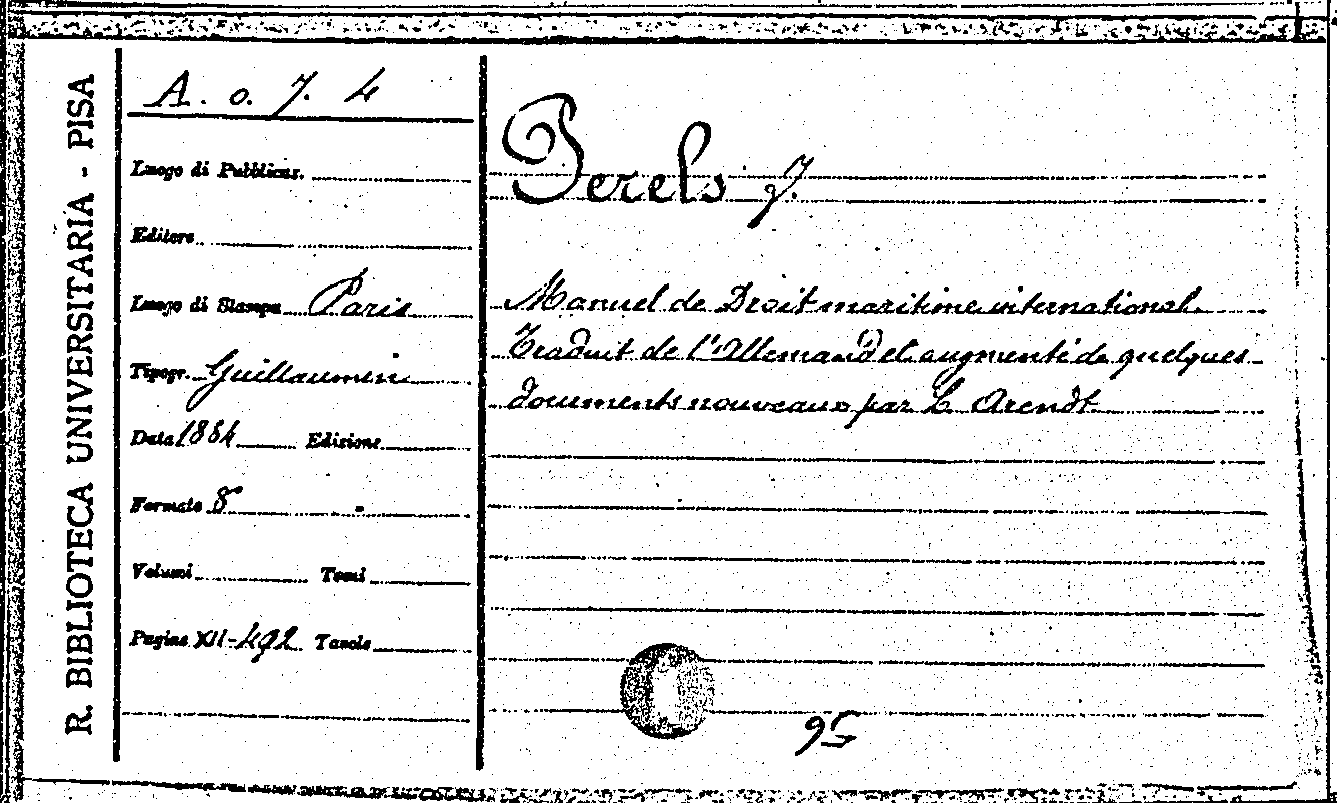 R. BIBLIOTECA UNIVERSITARIA - PISA
A. o. 7. 4
Luogo di Pubblicaz.
Editore
Luogo di Stampa Paris
Tipogr. Guillaumin
Data 1884 Edizione
Formato 8
Volumi Tomi
Pagine XII-492 Tavole
Perels J.
Manuel de Droit maritime international.
Traduit de l'Allemand et augmenté de quelques
documents nouveaux par L. Arendt
95